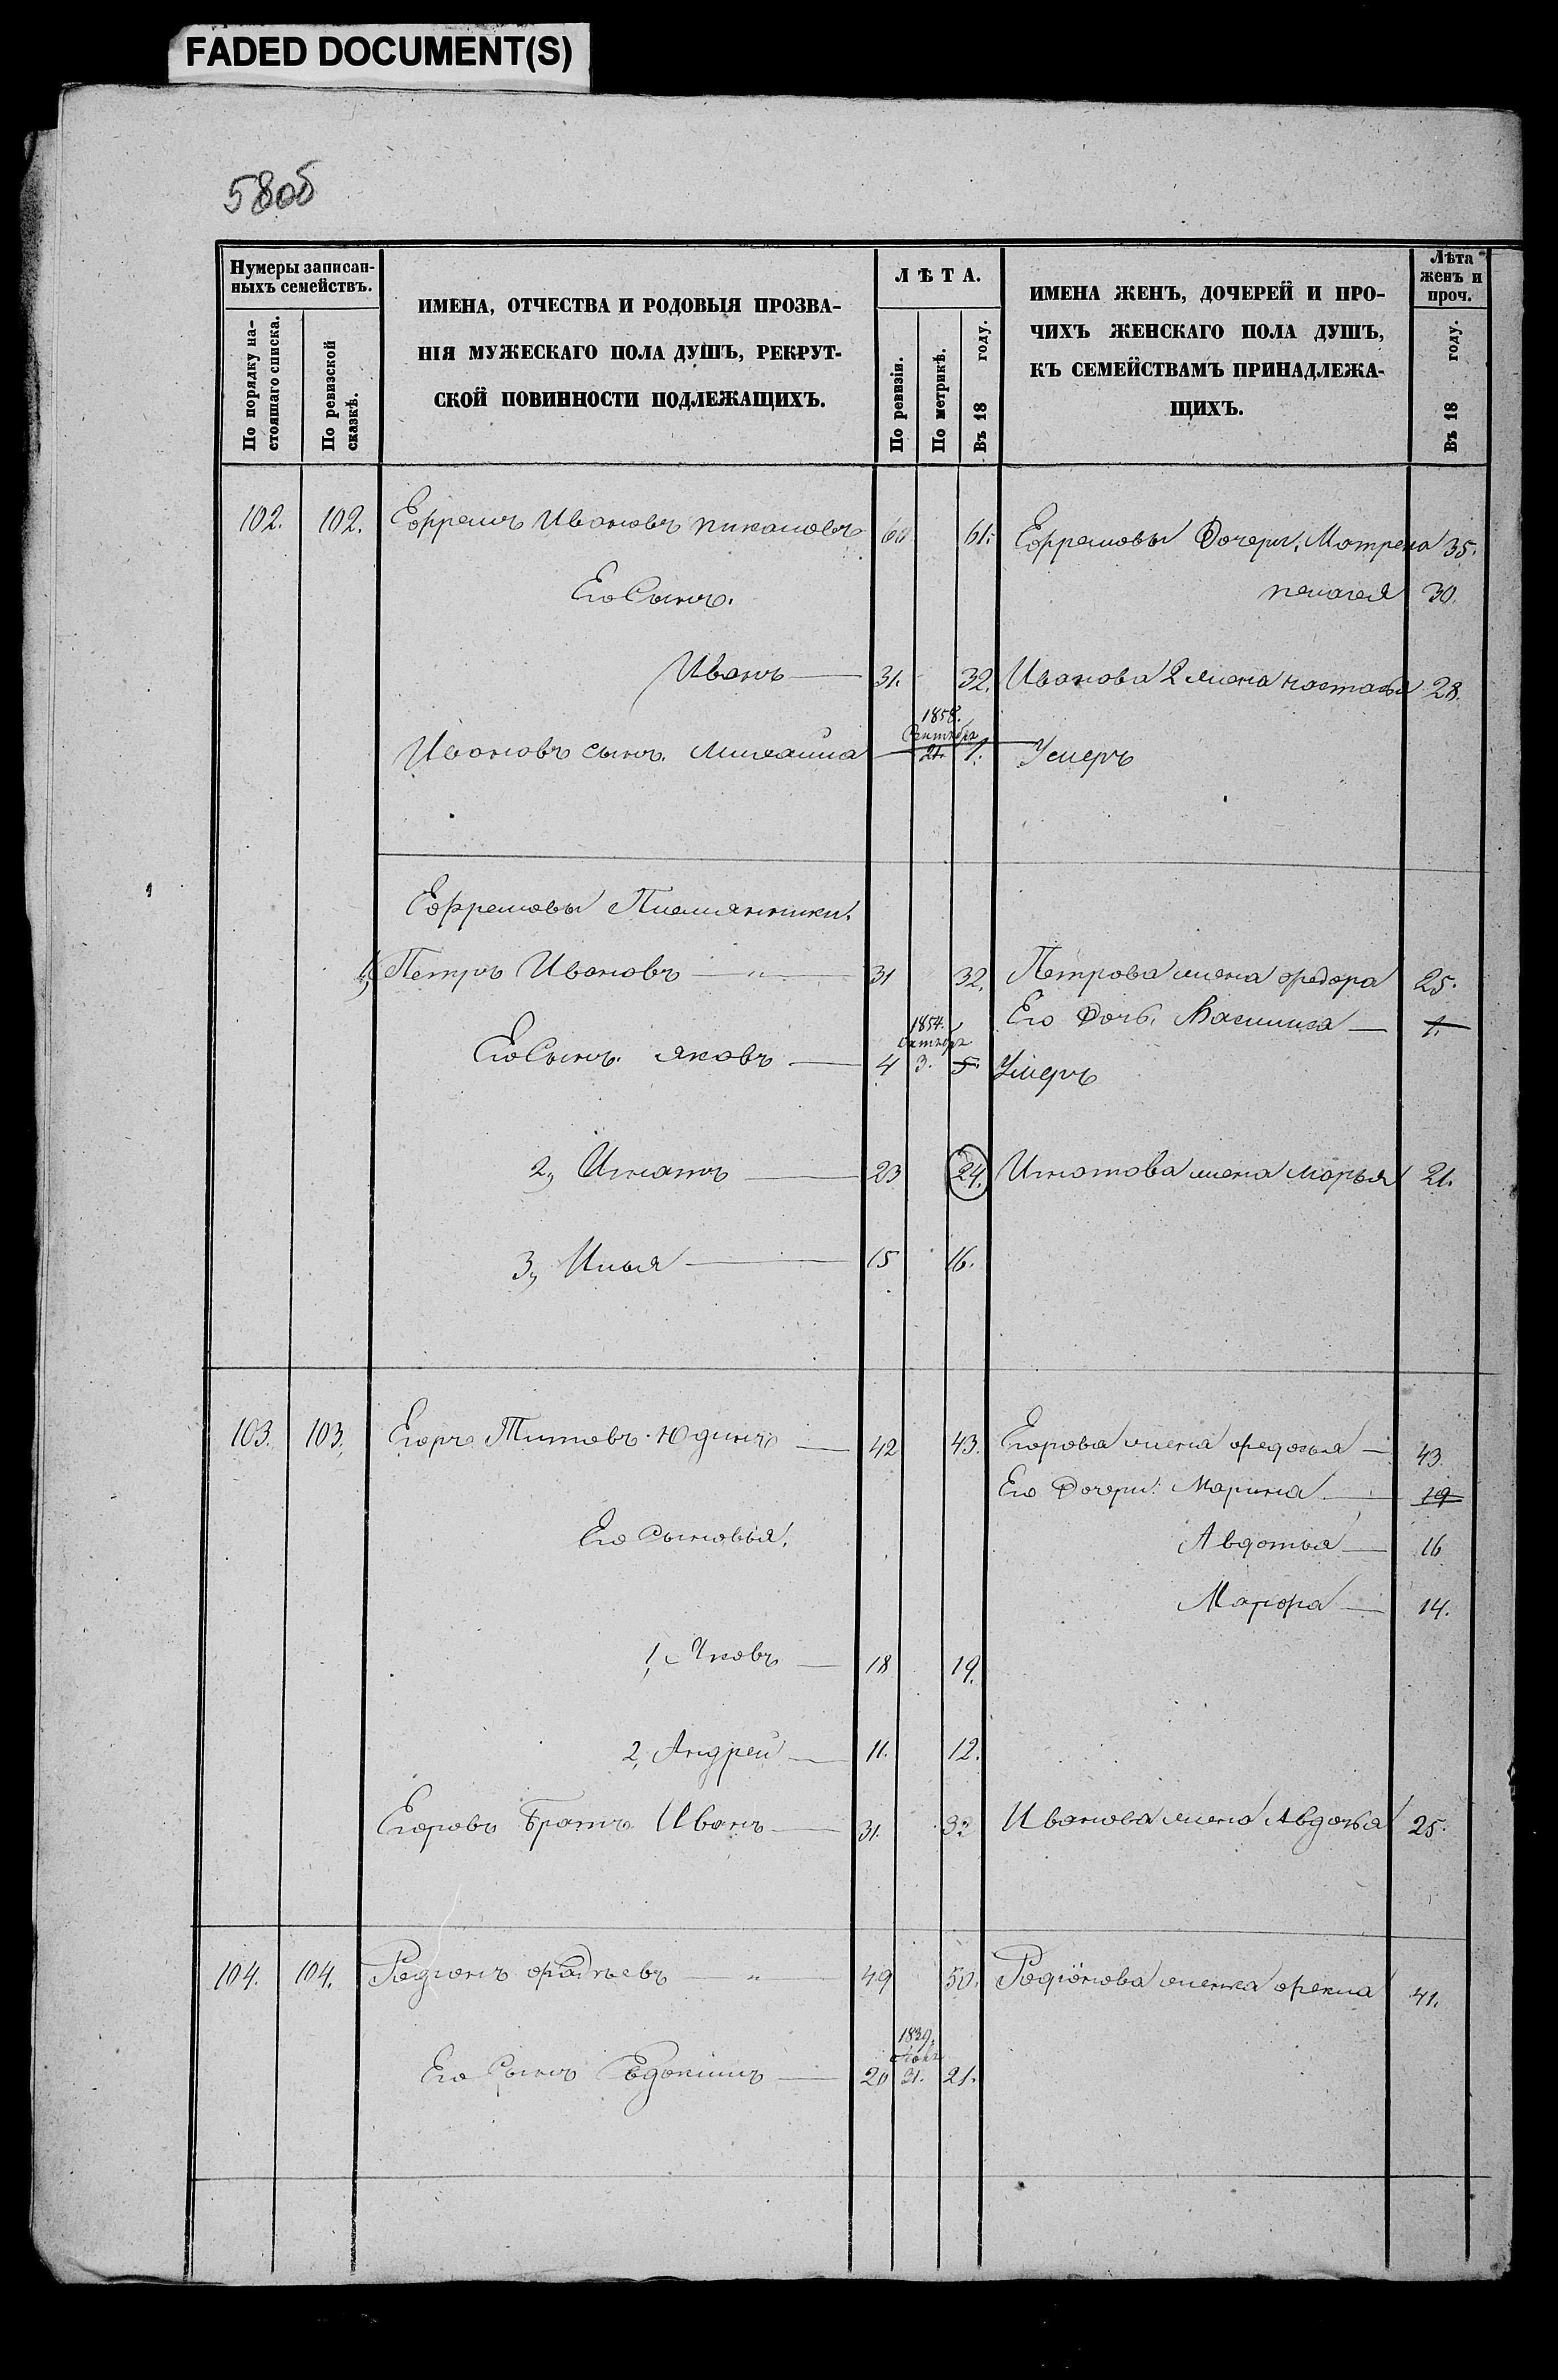 FADED DOCUMENT(S)
58об
Нумеры записан-
ныхъ семействъ.
По порядку на-
стоящаго списка.
По ревизской
сказкѣ.
ИМЕНА, ОТЧЕСТВА И РОДОВЫЯ ПРОЗВА-
НІЯ МУЖЕСКАГО ПОЛА ДУШЪ, РЕКРУТ-
СКОЙ ПОВИННОСТИ ПОДЛЕЖАЩИХЪ.
ЛѢТА.
По ревизіи.
По метрикѣ.
Въ 18 году.
ИМЕНА ЖЕНЪ, ДОЧЕРЕЙ И ПРО-
ЧИХЪ ЖЕНСКАГО ПОЛА ДУШЪ,
КЪ СЕМЕЙСТВАМЪ ПРИНАДЛЕЖА-
ЩИХЪ.
Лѣта
женъ и
проч.
Въ 18 году.
102. 102. Ефремъ Ивановъ 60 61. Ефремовы Дочери: Матрена 35.
Его Сынъ. пелагея 30.
Иванъ 31. 32. Иванова 2 жена настасья 28.
1858.
Сентября
Ивановъ сынъ. Михаила 21. 1. Умеръ
Ефремовы Племянники:
1, Петръ Ивановъ — " — 31 32. Петрова жена федора 25.
Его Дочь. Василиса — 1.
1854.
Октября
Его Сынъ. яковъ 4 3. 5. Умеръ
2, Игнатъ 23 24. Игнатова жена марья 21.
3, Илья 15 16.
103. 103. Егоръ Титовъ Юдинъ — 42 43. Егорова жена федосья — 43.
Его Дочери: Марина 19
Его Сыновья: Авдотья — 16
Марфа — 14.
1, Яковъ — 18 19.
2, Андрей — 11. 12.
Егоровъ Братъ Иванъ — 31. 32 Иванова жена Авдотья 25.
104. 104. Родіонъ фадѣевъ — " — 49 50. Родіонова жена фекла 41.
1839.
Его Сынъ Евдокимъ — 20 31. 21.